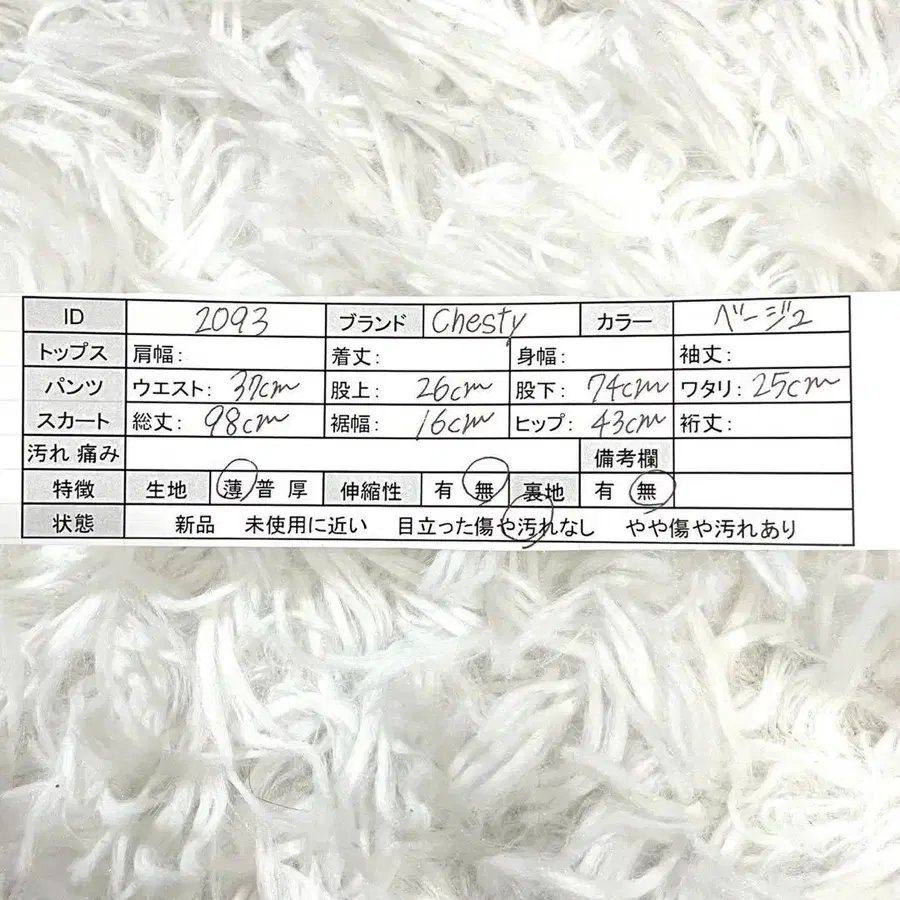 ID 2093 ブランド Chesty カラー ベージュ
トップス 肩幅: 着丈: 身幅: 袖丈:
パンツ ウエスト: 37cm 股上: 26cm 股下: 74cm ワタリ: 25cm
スカート 総丈: 98cm 裾幅: 16cm ヒップ: 43cm 裄丈:
汚れ 痛み 備考欄
特徴 生地 薄 普 厚 伸縮性 有 無 裏地 有 無
状態 新品 未使用に近い 目立った傷や汚れなし やや傷や汚れあり